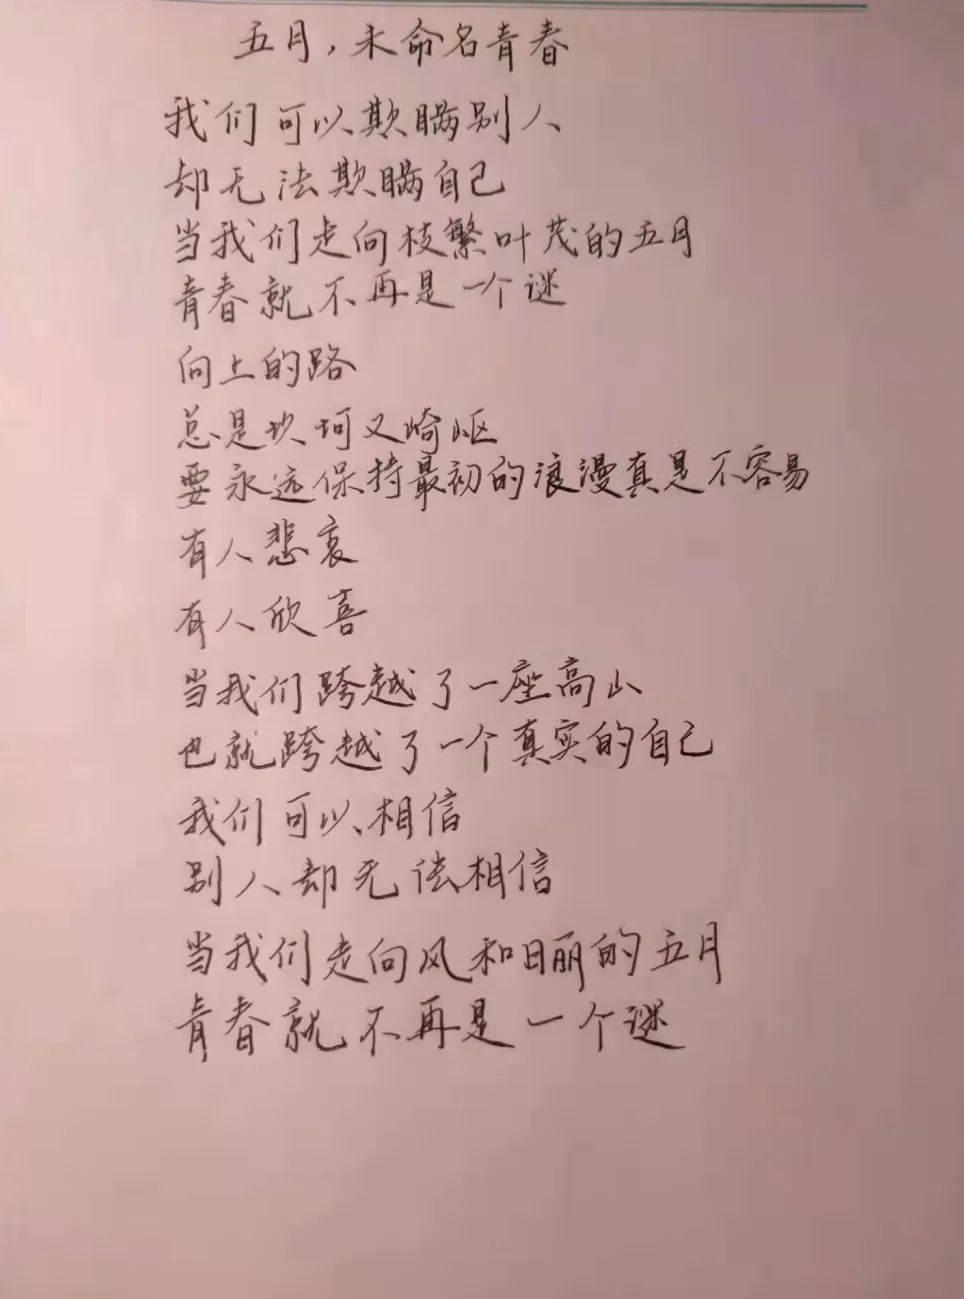 五月，未命名青春
我们可以欺瞒别人
却无法欺瞒自己
当我们走向枝繁叶茂的五月
青春就不再是一个谜
向上的路
总是坎坷又崎岖
要永远保持最初的浪漫真是不容易
有人悲哀
有人欣喜
当我们跨越了一座高山
也就跨越了一个真实的自己
我们可以相信
别人却无法相信
当我们走向风和日丽的五月
青春就不再是一个谜